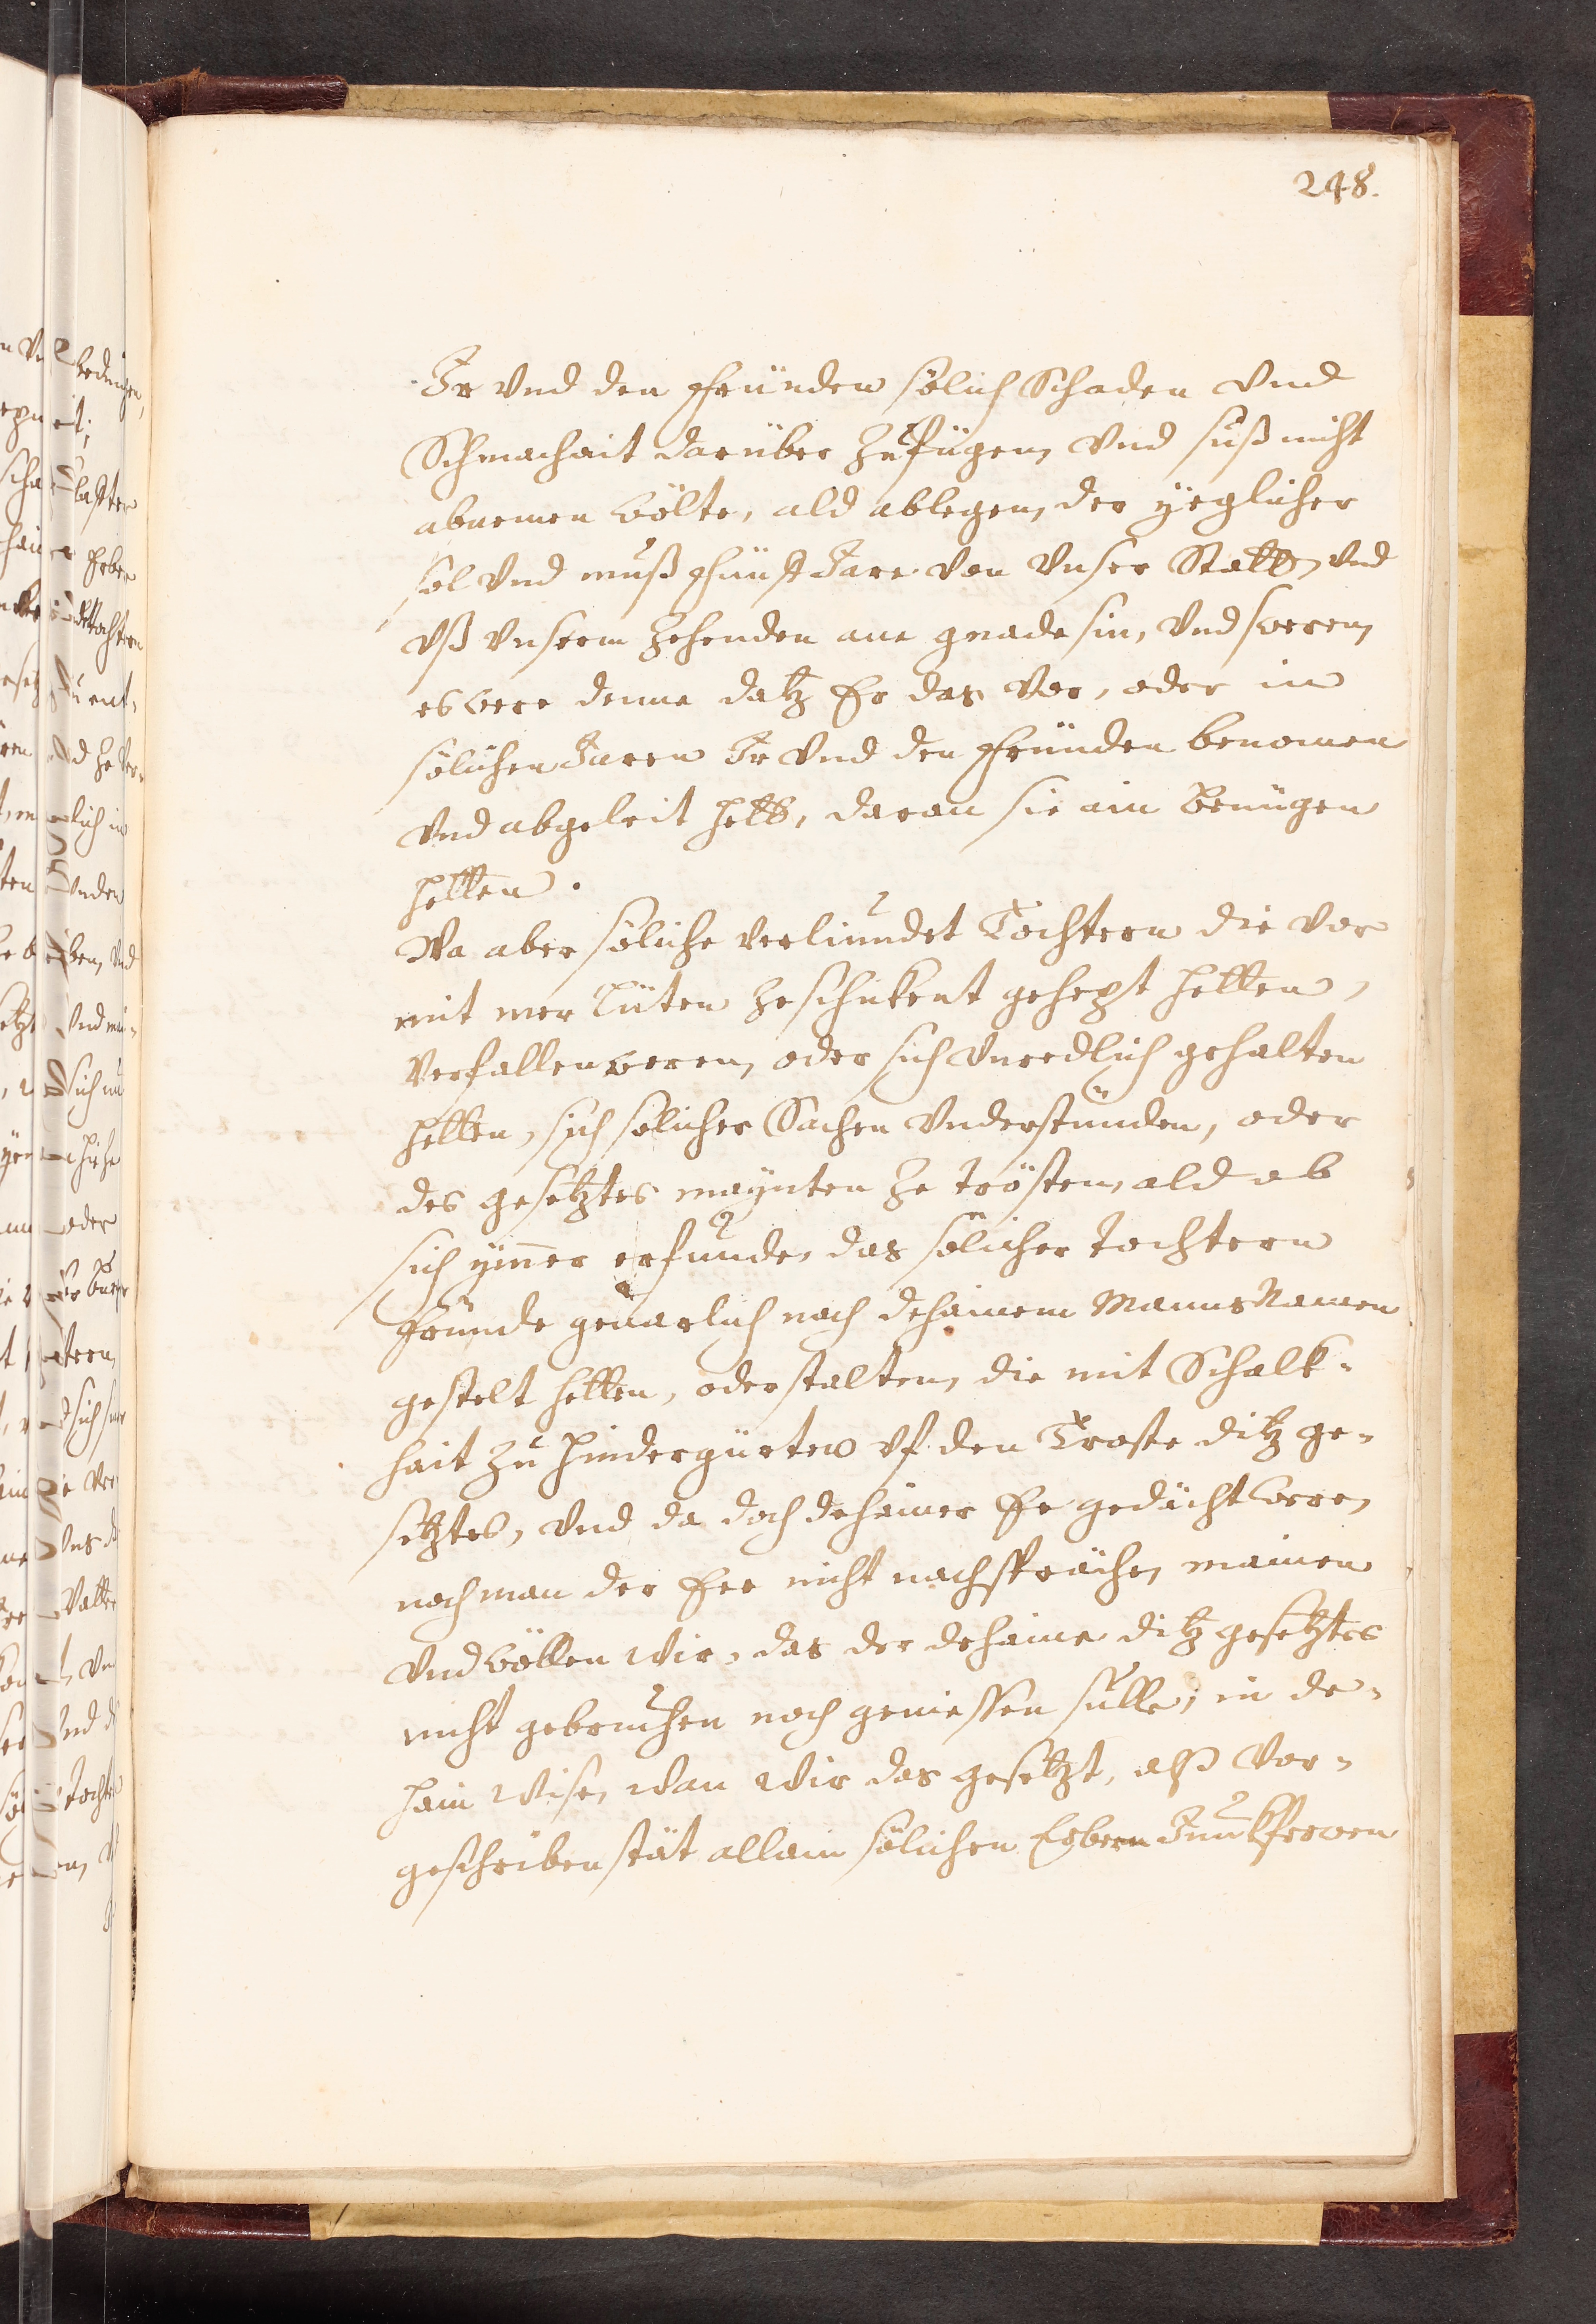 248.
Ir vnd den fründen sölich Schaden vnd
Schmachait darüber Zufügen, vnd suß nicht
abnemen wölte, ald ablegen, der yeglicher
sol vnd muß fünff Jare von vnser Statt, vnd
vß vnserm Zehenden ane gnade sin, vnd sweren,
es were denne datz Er das vor, oder in
sölichen Jaren Ir vnd den fründen benomen
vnd abgeleit hett, daran sie ain Benügen
hetten.
Wa aber söliche verliundet Töchtern die vor
mit mer Lüten Zeschikent gehept hetten,
verfallen weren, oder sich vnredlich gehalten
hetten, sich solicher Sachen vnderstünden, oder
des gesetztes maynten Ze trösten, ald ob
sich ymer erfunde, das sölicher tochtern
fründe geuarlich nach dehainem Manns Namen
gestelt hetten, oder stalten, die mit Schalk-
hait Zu hindergürten vf den Troste ditz ge-
setztes, vnd da doch dehainer Ee gedächt were,
noch man der Eer nicht nachspräche, mainen
vnd wöllen Wir, das der dehaine ditz gesetztes
nicht gebruchen noch geniessen sülle, in de-
hain Wise, Wan Wir das gesetzt, alß vor-
geschriben stät allain sölichen Erbern Junkfrowen